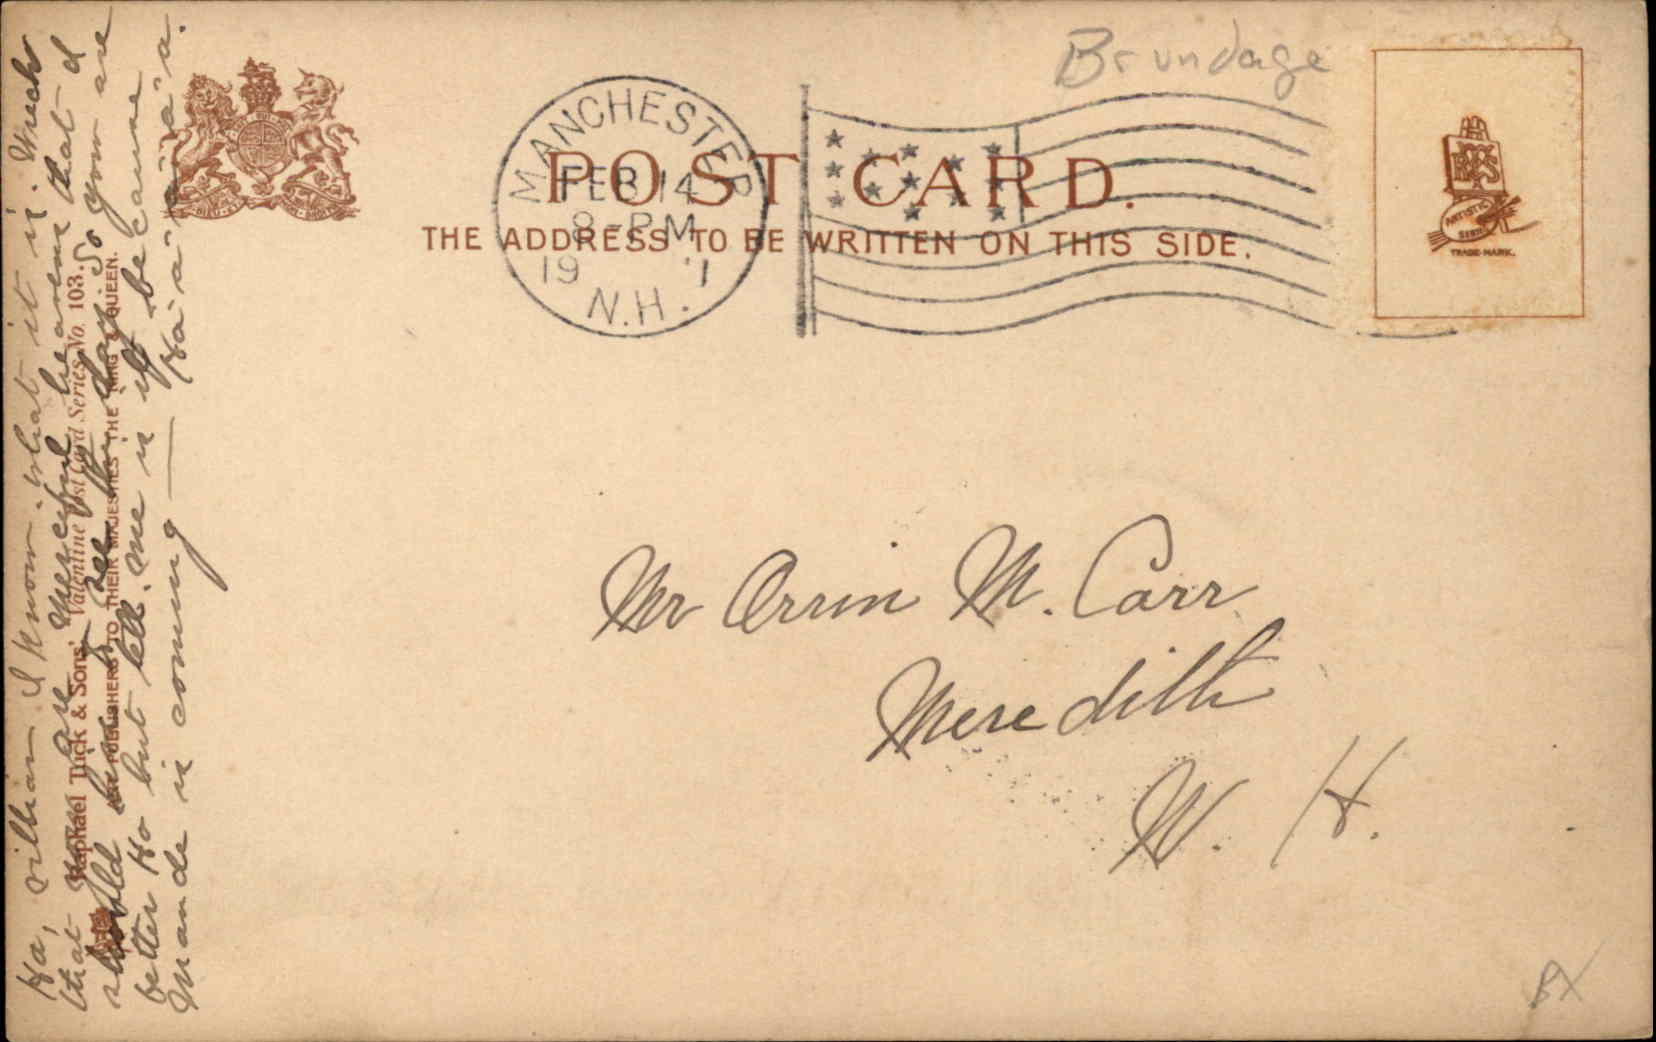 Brundage
MANCHESTER
FEB 14
8-PM
19
N.H.
POST CARD.
THE ADDRESS TO BE WRITTEN ON THIS SIDE.
ARTISTIC
SERIES
TRADE-MARK.
Mr Orrin M. Carr
Meredith
N. H.
Ha, villian I know what it is. Wreck
that you are Merciful heavens that I
should have to see for days. So you are
better Ho but tell me is it because
Maude is coming — Ha a a a a.
Raphael Tuck & Sons' Valentine Post Card Series No. 103.
ART PUBLISHERS TO THEIR MAJESTIES THE KING & QUEEN.